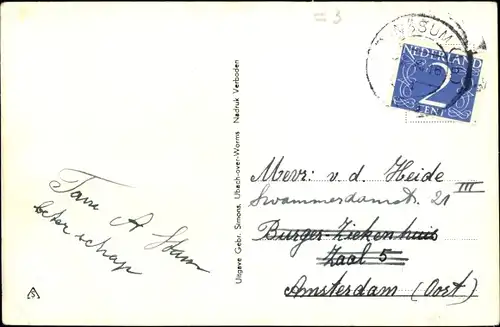 = 3
NEDERLAND
2
CENT
Uitgave Gebr. Simons, Ubach-over-Worms Nadruk Verboden
Fam A Stam
beterschap
Mevr: v. d. Heide
Swammerdamstr. 21 III
Burger Ziekenhuis
Zaal 5
Amsterdam (Oost)